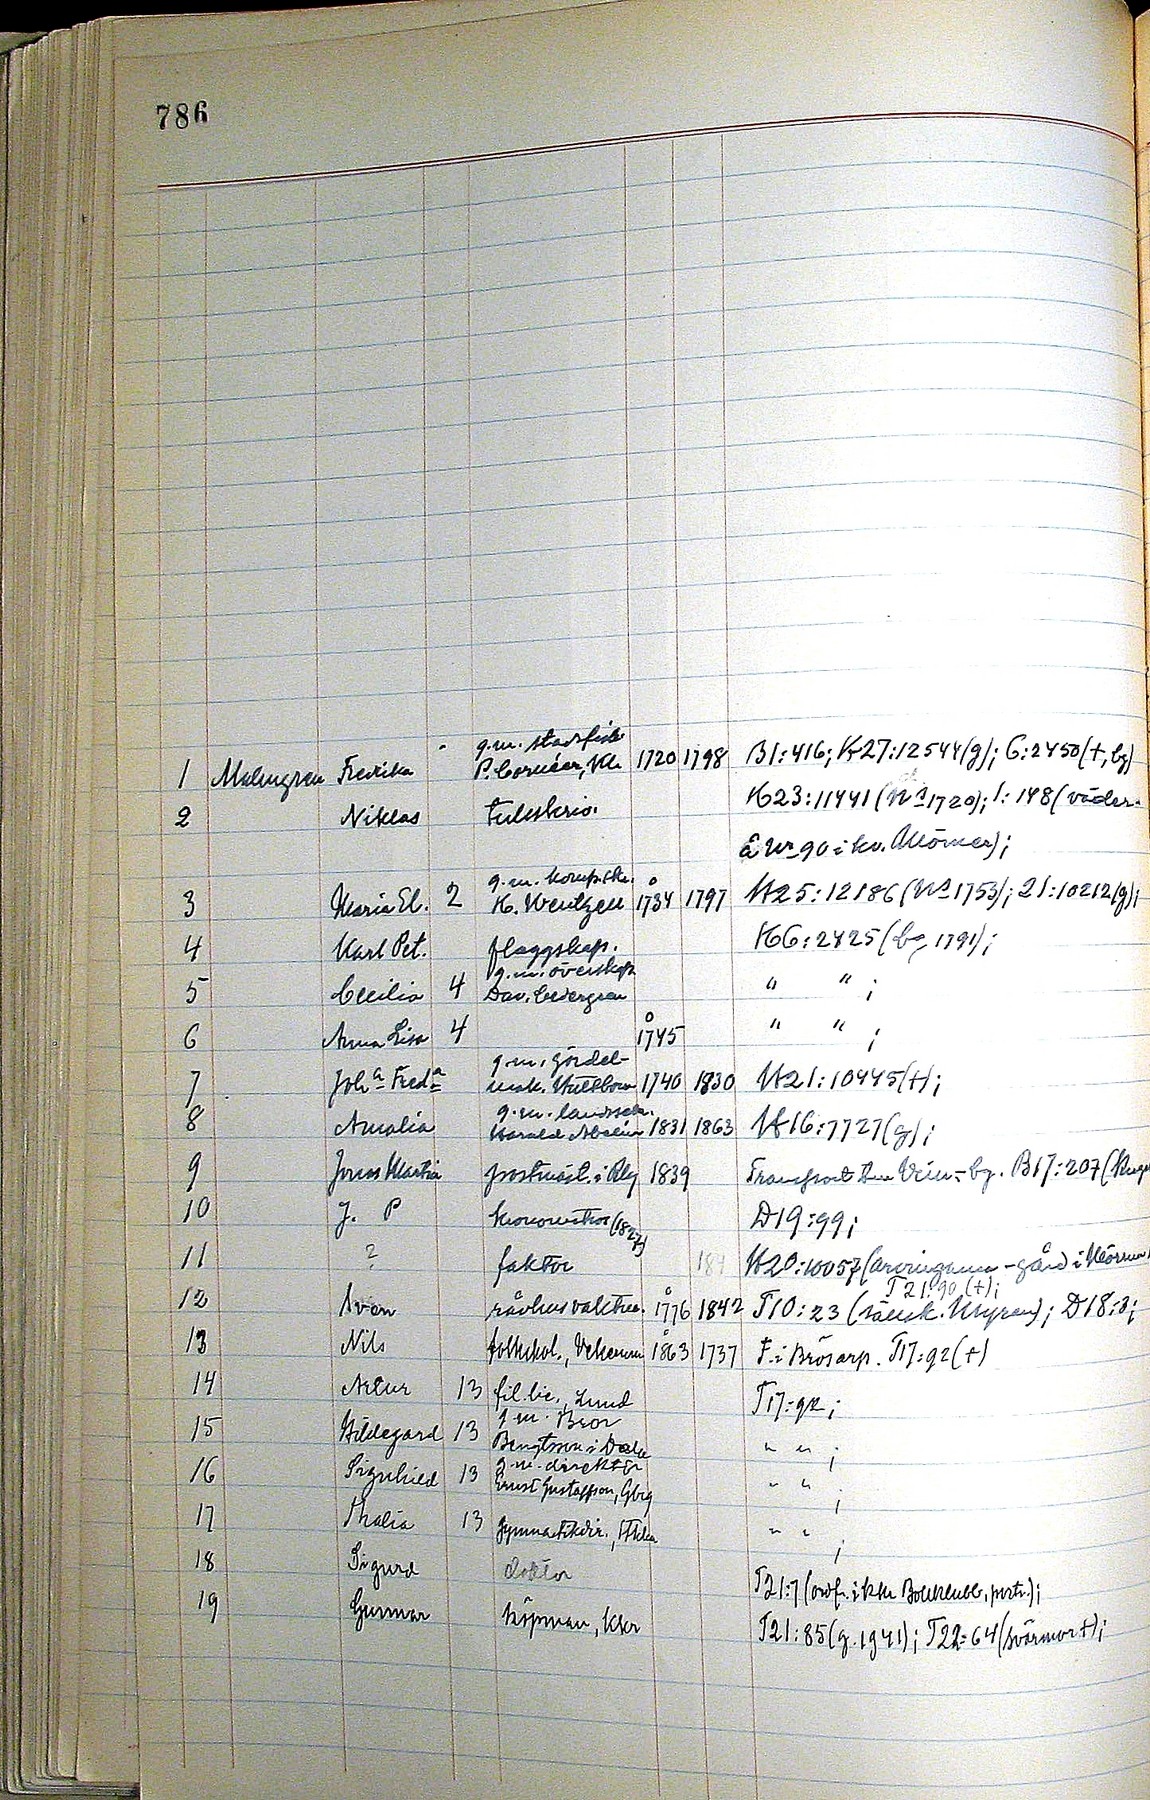 786
1 Malmgren Fredrika g.m. stadsfisk. P. Cornéer, Kla 1720 1798 B1:416; K27:12544(g); 6:2450(+, bg)
2 Niklas tullskriv. K23:11441 (Nr 1720); 1:148 (väder-
å Nr 90 i kv. Mörner);
3 Maria El. 2 g.m. komp.skr. K. Wentzell 1734 1797 K25:12186 (Nr 1753); 21:10212(g);
4 Karl Pet. flaggskep. K6:2425 (bg 1791);
5 Cecilia 4 g.m. överskep. Dav. Cedergren " " ;
6 Anna Lisa 4 1745 " " ;
7 Joha Freda g.m. gördel- mak. Hultbom 1740 1830 K21:10445(+);
8 Amalia g.m. landssekr. Harald 1831 1863 K16:7727(g);
9 Jonas Martin postmäst. i 1839 Transport bg. B17:207
10 J. P (1827) D19:99;
11 ? faktor 184 K20:10057 (arvingarna - gård i
T21:90 (+);
12 Sven rådhusvaktm. 1776 1842 T10:23 ; D18:3;
13 Nils folkskol., 1863 1737 F. i Brösarp. T17:92(+)
14 Artur 13 fil. lic., Lund T17:92;
15 Hildegard 13 g.m. Bror Bengtsson i " " ;
16 Sigrid 13 g.m. direktör Ernst Gustafsson, Gbg " " ;
17 Thalia 13 gymnastikdir., " " ;
18 Sigurd doktor T21:7 (ordf. i Bokklubb, portr.);
19 Gunnar köpman, Kkr T21:85 (g. 1941); T22:64 (svärmor +);